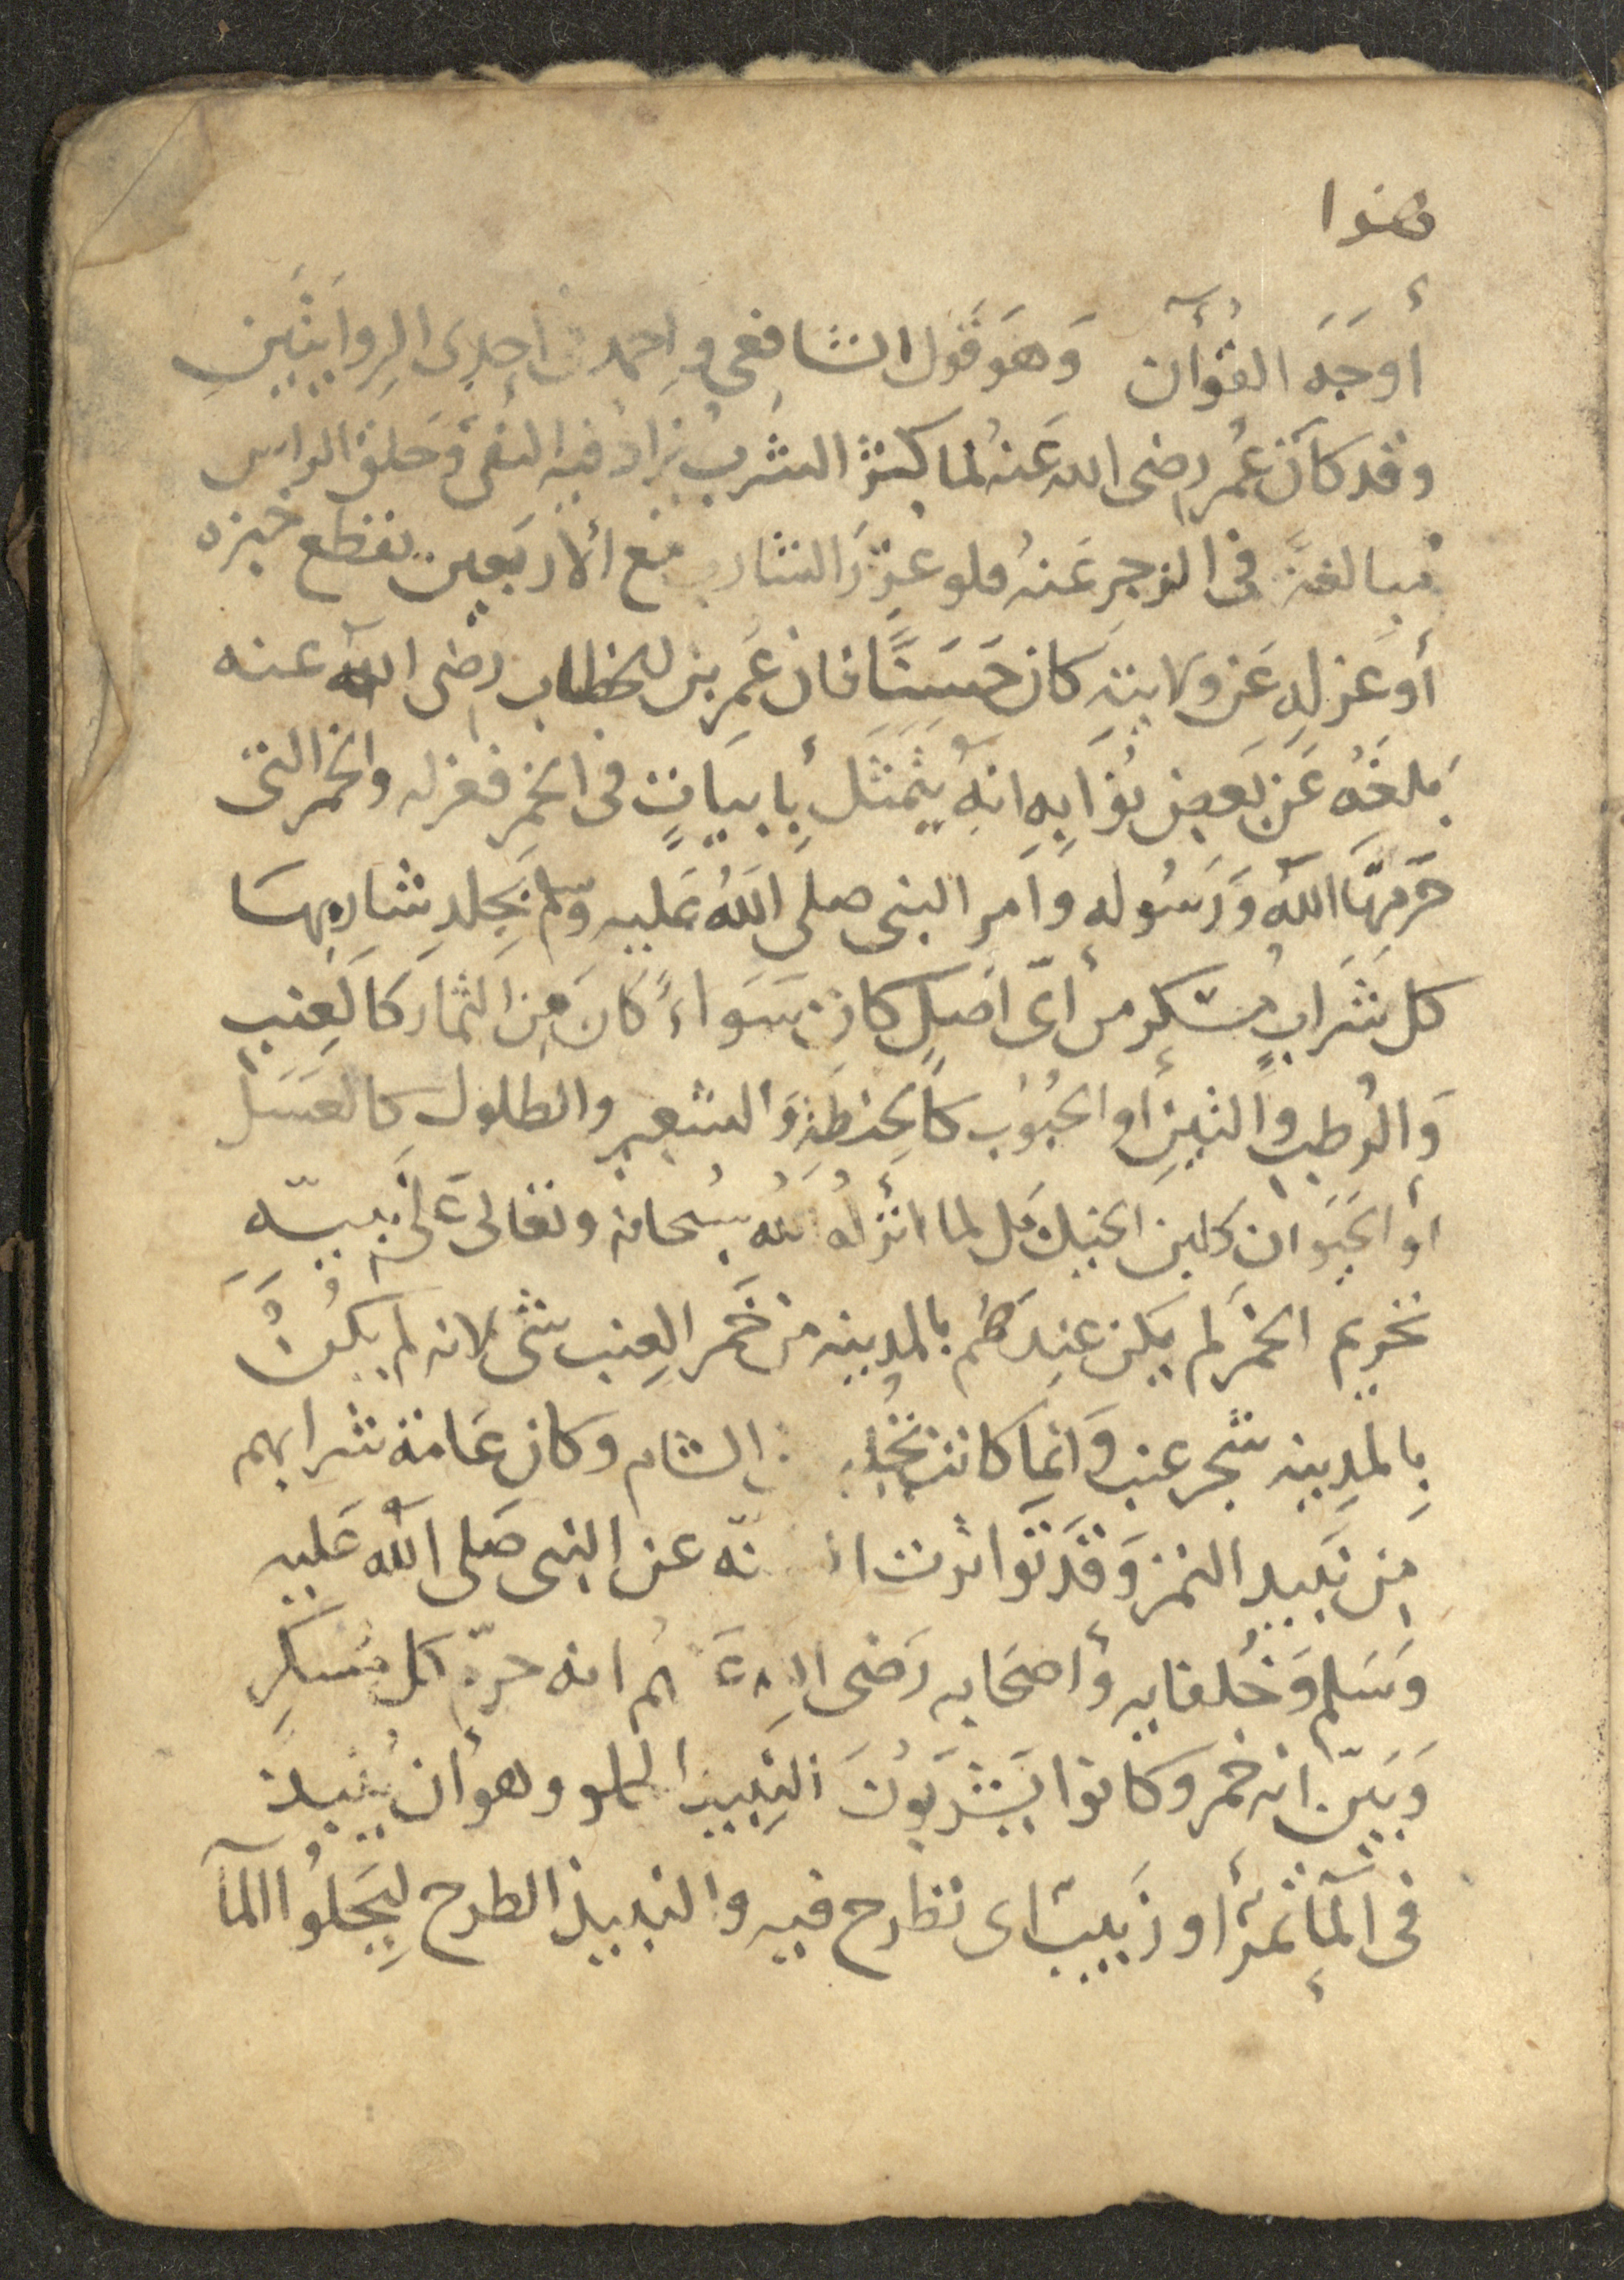 هذوا
أَوجَهَ القوُأٓن وَهوَ قَول الشافِعى وَاحمد فى أحِدِى الرِوايَتَينِ
وقد كانَ عُمرُ رضى الله عَنهُ لما كثرَ الشرب يُزاد فيه النفىَ وَحَلق الراس
مُبالغةً فى الزجرِ عَنهُ فلو عُزّرَ الشارب مَع الأربَعِين بقطع خبزه
أو عَزلِهِ عَن ولايتهِ كان حَسَنًا فان عَمر بن الخطاب رضى الله عنه
بَلغَهُ عَن بَعضِ نُوَابِهِ انهُ يَتمَثَل بِأبياتٍ فى الخمرِ فعزله والخمر التى
حَرّمهَا اللهُ وَرَسُوله وَامر النبى صلى اللهُ عَليه وسلم بَجِلدِ شاربها
كل شَرَابٍ مُسكرٍ من أىّ أصَلٍ كان سَوَاءً كانَ مِن الثمار كالَعِنبِ
وَالرُطبِ والتينِ أو الحبُوبُ كالحِنطَةِ وَالشعِير والطلول كالعَسَل
أو الحَيَوان كلبن الخيل بَل لما انزلهُ اللهُ سُبحانه وتعالى عَلى نَبيّه
تحريم الخمرَ لم يكن عِندَهُم بالمدينه مِن خَمر العِنب شى لانه لم يكُنُ
بِالمدِينه شجر عنب وَانما كانت تُجلب من الشام وكان عَامة شرابهم
مِن نَبيد التمر وَقد تَواترت السنّه عن النبى صَلى الله عَليه
وَسَلم وَخُلفايه وأصحَابه رَضى الله عنهم انه حرّم كل مُسكرٍ
وَبَيّن انه خمر وكانوا يَشرَبوُنَ النبِيدَ الحلو وهو أن يُنبذ
فى المآ تمرٌ أو زَبيب اى تطرح فيه والنبيذ الطرح ليَحلُوا المآ